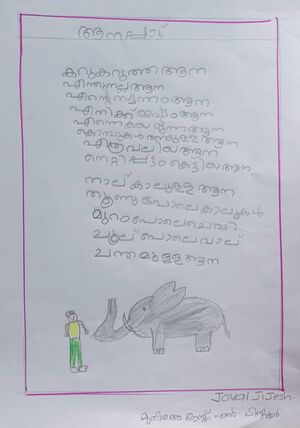 ആനപ്പാട്ട്
കറുകറുത്ത ആന
എന്തു നല്ല ആന
എന്റെ സ്വന്തം ആന
എനിക്ക് ഇഷ്ടം ആന
എന്നെ
കൊമ്പുകൾ ഉള്ള ആന
എത്ര വലിയ ആന
നെറ്റിപ്പട്ടം കെട്ടിയ ആന
നാല് കാലുള്ള ആന
തൂണു പോലെ കാലുകൾ
മുറം പോലെ ചെവി
ചൂല് പോലെ വാല്
ചന്തമുള്ള ആന
Joval Jijesh.